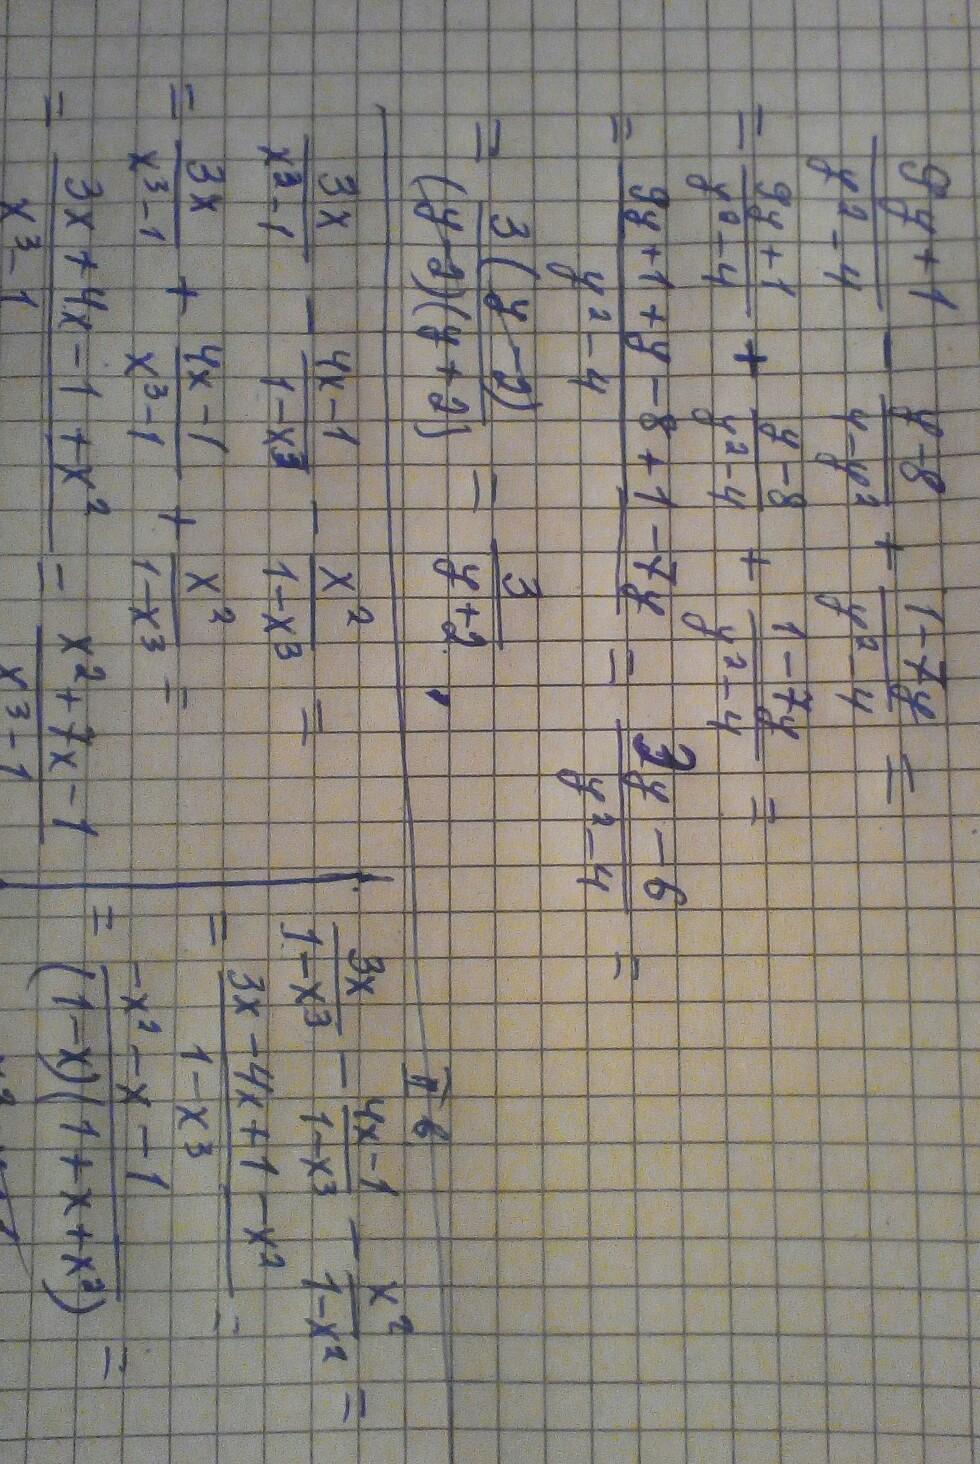 (9y+1)/(y²-4) - (y-8)/(4-y²) + (1-7y)/(y²-4) =
= (9y+1)/(y²-4) + (y-8)/(y²-4) + (1-7y)/(y²-4) =
= (9y+1+y-8+1-7y)/(y²-4) = (3y-6)/(y²-4) =
= 3(y-2)/((y-2)(y+2)) = 3/(y+2).
3x/(x³-1) - (4x-1)/(1-x³) - x²/(1-x³) =
= 3x/(x³-1) + (4x-1)/(x³-1) + x²/(1-x³) =
= (3x+4x-1+x²)/(x³-1) = (x²+7x-1)/(x³-1)
II б
3x/(1-x³) - (4x-1)/(1-x³) - x²/(1-x²) =
= (3x-4x+1-x²)/(1-x³) =
= (-x²-x-1)/((1-x)(1+x+x²)) =